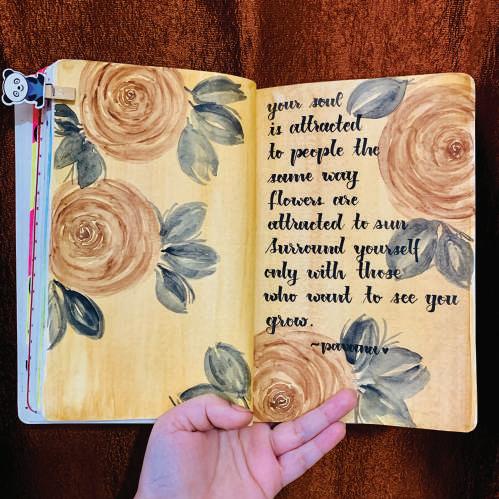 your soul
is attracted
to people the
same way
flowers are
attracted to sun
surround yourself
only with those
who want to see you
grow.
~pavana♥